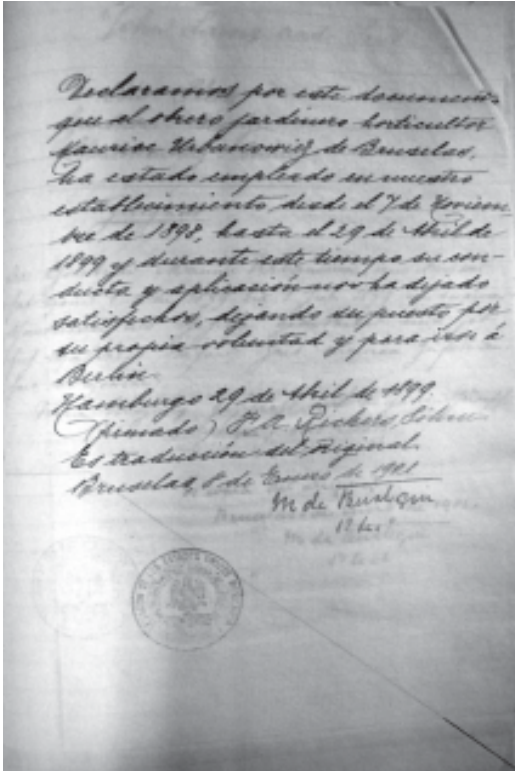 Declaramos por este documento
que el obrero jardinero horticultor
Maurice Urbanowicz de Bruselas,
ha estado empleado en nuestro
establecimiento desde el 7 de Noviem-
bre de 1898, hasta el 29 de Abril de
1899 y durante este tiempo su con-
ducta y aplicación nos ha dejado
satisfechos, dejando su puesto por
su propia voluntad y para irse á
Berlin.
Hamburgo 29 de Abril de 1899.
(firmado)
Es traducción del original.
Bruselas, 8 de Enero de 1901
M de